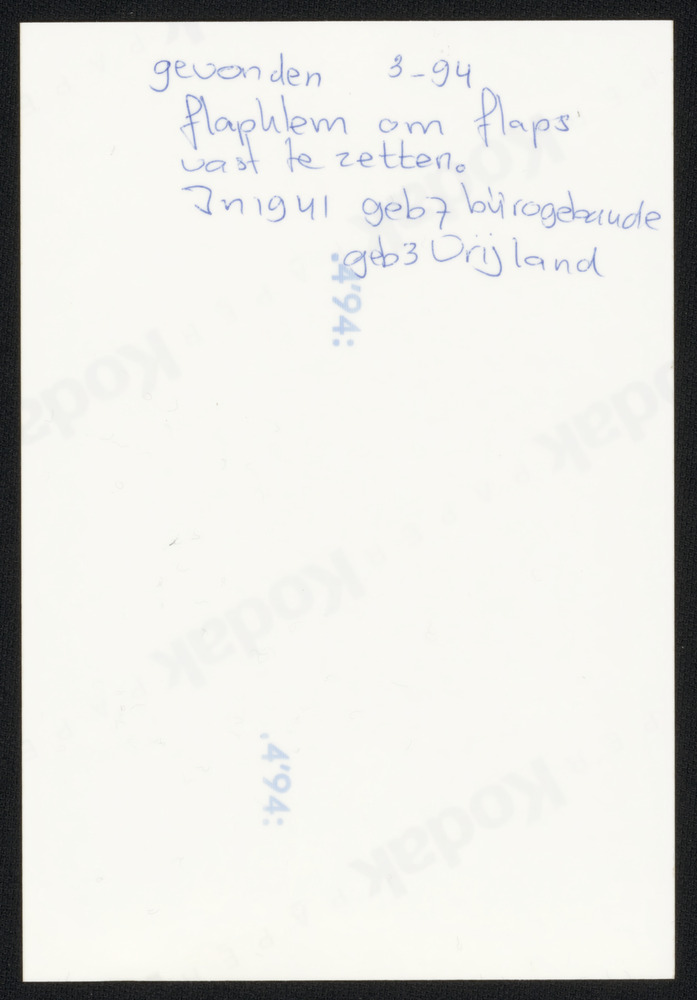 gevonden 3-94
flapklem om flaps
vast te zetten.
In 1941 geb 7 bürogebaude
geb 3 Vrijland
.4'94:
Kodak
Kodak
Kodak
.4'94:
Kodak